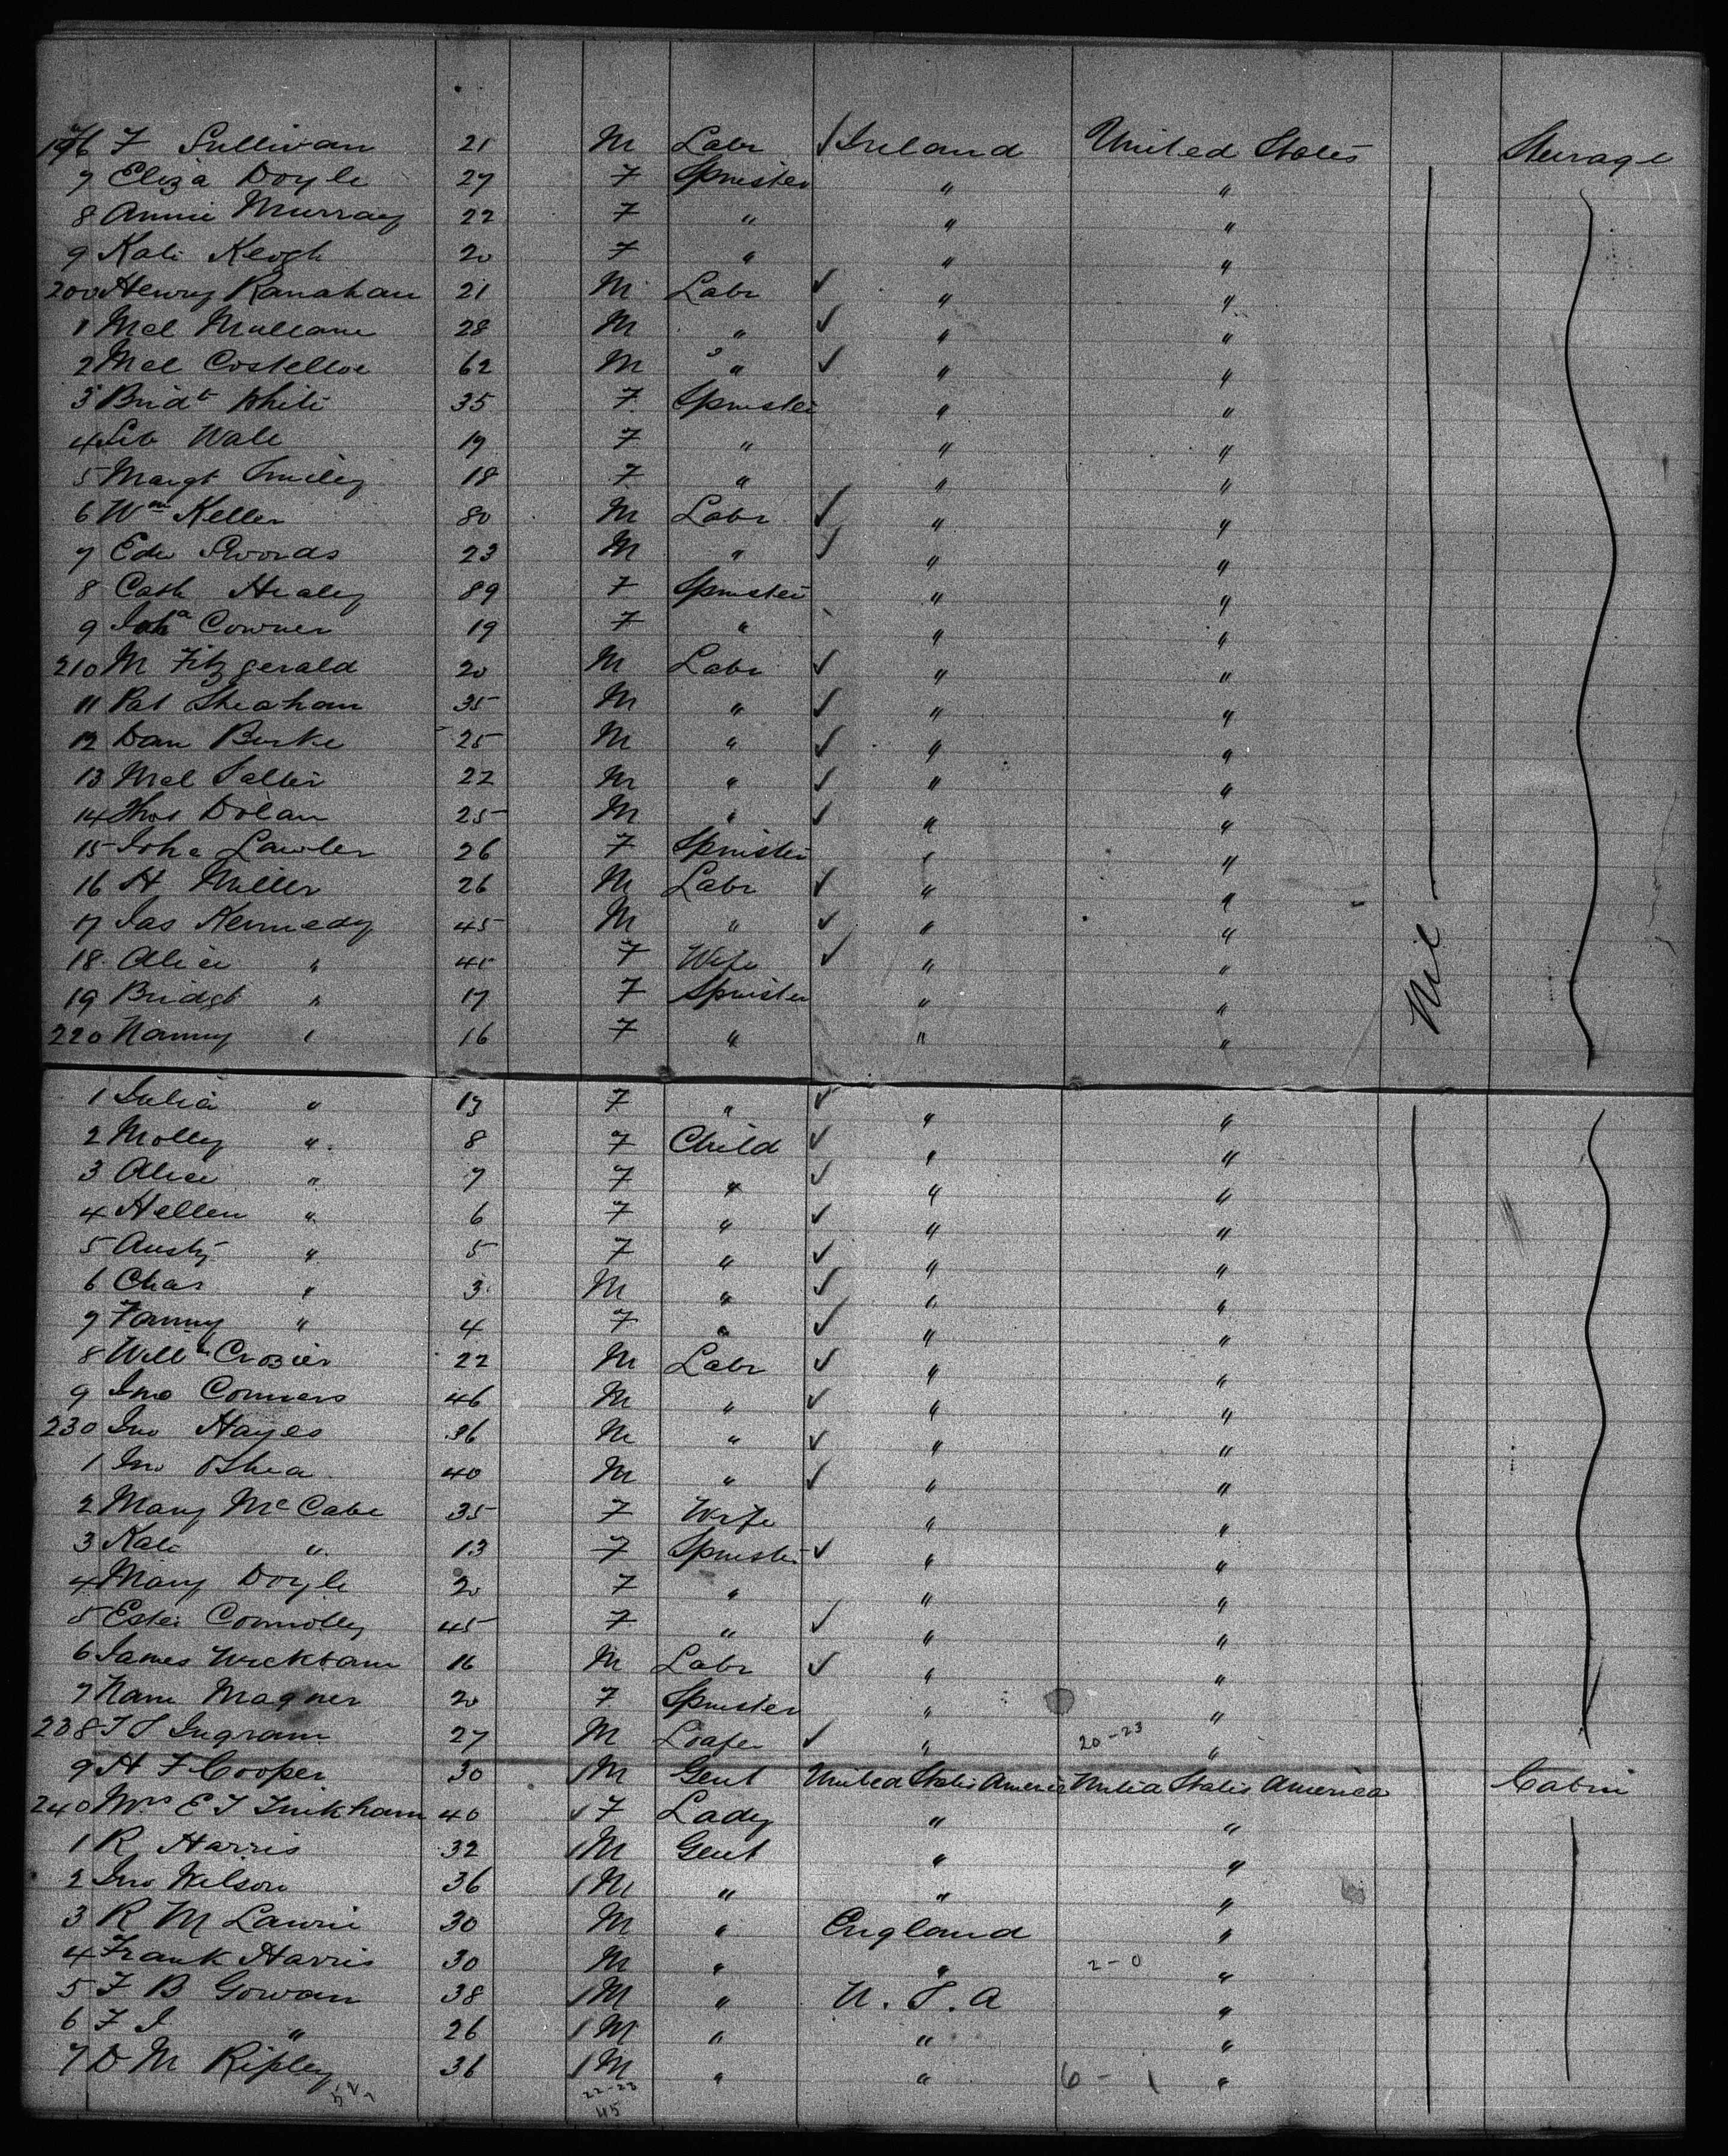 196 F Sullivan 21 M Labr ✓ Ireland United States Steerage
7 Eliza Doyle 27 F Spinster " "
8 Annie Murray 22 F " " "
9 Kate Keogh 20 F " " "
200 Henry Ranahan 21 M Labr ✓ " "
1 Mcl Mullane 28 M " ✓ " "
2 Mcl Costelloe 62 M " ✓ " "
3 Bridt White 35 F Spinster " "
4 Wall 19 F " " "
5 Margt Smiley 18 F " " "
6 Wm Keller 80 M Labr ✓ " "
7 Edw Swords 23 M " ✓ " "
8 Cath Healey 89 F Spinster " "
9 Joha Cowner 19 F " " "
210 M Fitzgerald 20 M Labr ✓ " "
11 Pat Sheahan 35 M " ✓ " "
12 Dan Burke 25 M " ✓ " "
13 Mcl Salter 22 M " ✓ " "
14 Thos Dolan 25 M " ✓ " "
15 Joha Lawler 26 F Spinster " "
16 H Miller 26 M Labr ✓ " "
17 Jas Kennedy 45 M " ✓ " "
18 Alice " 45 F Wife ✓ " " Nil
19 Bridgt " 17 F Spinster " "
220 Nanny " 16 F " " "
1 Julia " 13 F " ✓ " "
2 Molly " 8 F Child ✓ " "
3 Alice " 7 F " ✓ " "
4 Hellen " 6 F " ✓ " "
5 Austy " 5 F " ✓ " "
6 Chas " 3 M " ✓ " "
7 Fanny " 4 F " ✓ " "
8 Willm Crozier 22 M Labr ✓ " "
9 Jno Connors 46 M " ✓ " "
230 Jno Hayes 36 M " ✓ " "
1 Jno OShea 40 M " ✓ " "
2 Mary McCabe 35 F Wife " "
3 Kate " 13 F Spinster ✓ " "
4 Mary Doyle 20 F " " "
5 Ester Connolly 45 F " ✓ " "
6 James Wickham 16 M Labr ✓ " "
7 Nam Magner 20 F Spinster " "
238 Ingram 27 M Loafer ✓ " 20-23 "
9 H F Cooper 30 M Gent United States America United States America Cabin
240 Mrs E T Tinkham 40 F Lady " "
1 R Harris 32 M Gent " "
2 Jno Wilson 36 M " " "
3 R M Lawrie 30 M " England "
4 Frank Harris 30 M " " 2-0 "
5 F B Gowan 38 M " U.S.A "
6 F J " 26 M " " "
7 D M Ripley 36 M " " 6-1 "
22-23
45